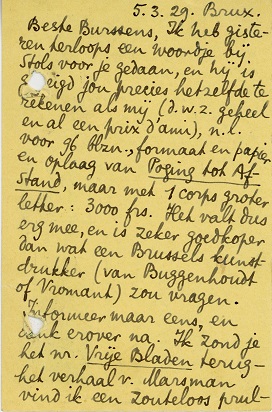 5.3.29. Brux.
Beste Burssens, Ik heb giste-
ren terloops een woordje bij
Stols voor je gedaan, en hij is
eigd jou precies hetzelfde te
rekenen als mij (d.w.z. geheel
en al een prix d'ami), n.l.
voor 96 blzn., formaat en papier
en oplaag van Poging tot Af-
stand, maar met 1 corps groter
letter: 3000 frs. Het valt dus
erg mee, en is zeker goedkoper
dan wat een Brussels kunst-
drukker (van Buggenhoudt
of Vromant) zou vragen.
Informeer maar eens, en
denk erover na. Ik zond je
het nr. Vrije Bladen terug-
het verhaal v. Marsman
vind ik een zouteloos prul-